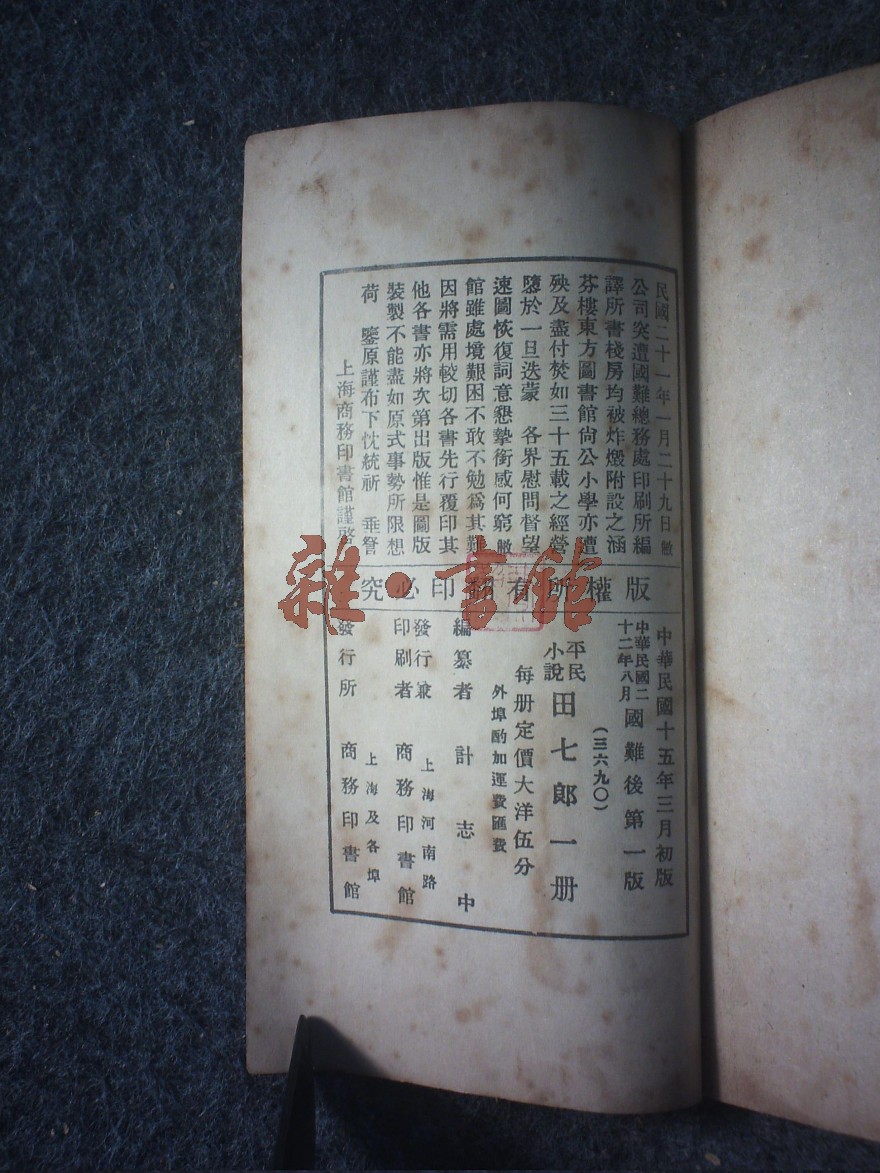 民國二十一年一月二十九日敝
公司突遭國難總務處印刷所編
譯所書棧房均被炸燬附設之涵
芬樓東方圖書館尙公小學亦遭
殃及盡付焚如三十五載之經營
隳於一旦迭蒙 各界慰問督望
速圖恢復詞意懇摯銜感何窮敝
館雖處境艱困不敢不勉爲其難
因將需用較切各書先行覆印其
他各書亦將次第出版惟是圖版
裝製不能盡如原式事勢所限想
荷 鑒原謹布下忱統祈 垂詧
上海商務印書館謹啓
版權所有翻印必究
中華民國十五年三月初版
中華民國二
十二年八月
國難後第一版
(三六九〇)
平民
小說
田七郎一册
每册定價大洋伍分
外埠酌加運費匯費
編纂者 計志中
發行兼
印刷者
上海河南路
商務印書館
發行所
上海及各埠
商務印書館
雜·書館